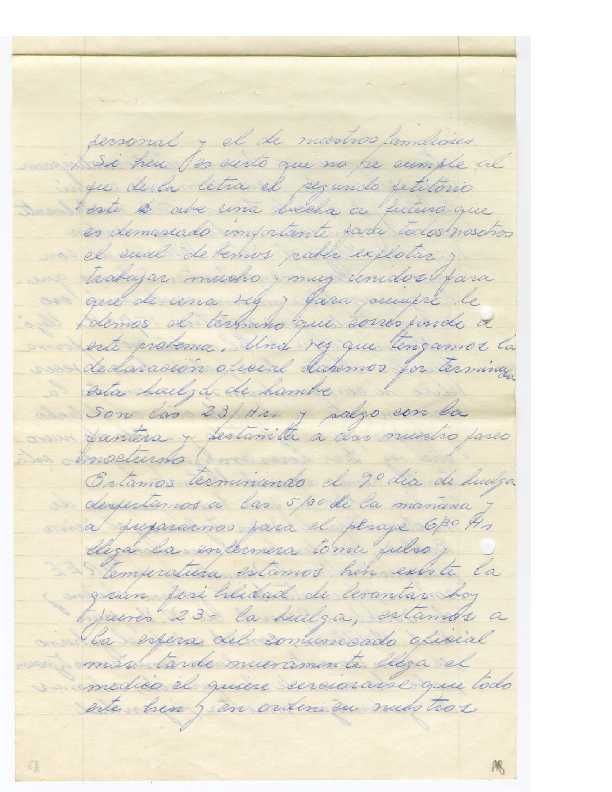 personal y el de nuestros familiares.
Si bien es cierto que no se cumple al
pie de la letra el segundo petitorio
este abre una brecha a futuro que
es demasiado importante para todos nosotros
el cual debemos saber explotar y
trabajar mucho y muy unidos para
que de una vez y para siempre le
demos el termino que corresponde a
este problema. Una vez que tengamos la
declaración oficial daremos por terminada
esta huelga de hambre
Son las 23/Hrs. y salgo con la
pantera y pestañita a dar nuestro paseo
nocturno
Estamos terminando el 9º dia de huelga
despertamos a las 5/30 de la mañana y
a prepararnos para el pesaje 6/30 Hs
llega la enfermera toma pulso y
temperatura estamos bien existe la
gran posibilidad de levantar hoy
jueves 23 la huelga, estamos a
la espera del comunicado oficial
más tarde nuevamente llega el
medico el quiere cerciorarse que todo
este bien y en orden en nuestros